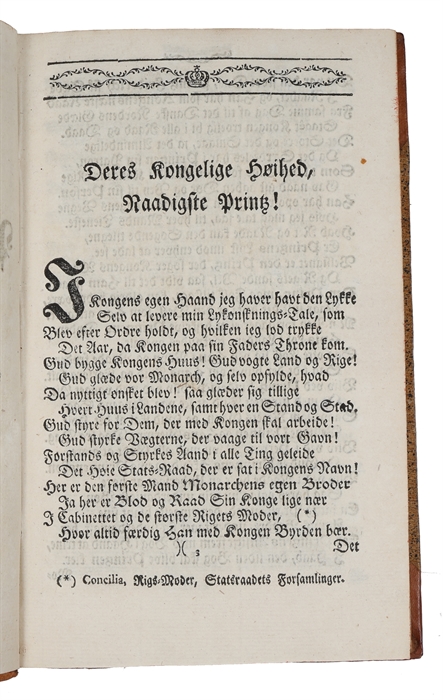 Deres Kongelige Høihed,
Naadigste Printz!
I Kongens egen Haand jeg haver havt den Lykke
Selv at levere min Lykonsknings-Tale, som
Blev efter Ordre holdt, og hvilken jeg lod trykke
Det Aar, da Kongen paa sin Faders Throne kom.
Gud bygge Kongens Huus! Gud vogte Land og Rige!
Gud glæde vor Monarch, og selv opfylde, hvad
Da nyttigt ønsket blev! saa glæder sig tillige
Hvert Huus i Landene, samt hver en Stand og Stad.
Gud styre for Dem, der med Kongen skal arbeide!
Gud styrke Vægterne, der vaage til vort Gavn!
Forstands og Styrkes Aand i alle Ting geleide
Det Høie Stats-Raad, der er sat i Kongens Navn!
Her er den første Mand Monarchens egen Broder
Ja her er Blod og Raad Sin Konge lige nær
I Cabinettet og de største Rigets Moder, (*)
Hvor altid færdig Han med Kongen Byrden bær.
)( 3
Det
(*) Concilia, Rigs-Moder, Statsraadets Forsamlinger.